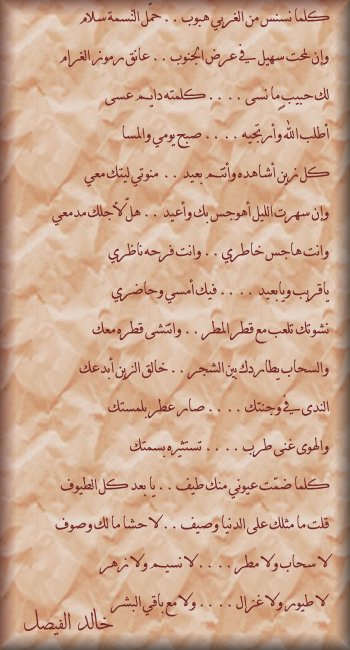 كلما نسنس من الغربي هبوب . . حمّل النّسمة سلام
وإن لمحت سهيل في عرض الجنوب . . عانق رموز الغرام
لك حبيبٍ ما نسى . . . . كلمته دايم عسى
أطلب الله وأرتجيه . . . . صبح يومي والمسا
كل زين أشاهده وأنتم بعيد . . منوتي ليتك معي
وإن سهرت الليل أهوجس بك وأعيد . . هلّ لأجلك مدمعي
وانت هاجس خاطري . . وانت فرحه ناظري
يا قريب ويا بعيد . . . . فيك أمسي وحاضري
نشوتك تلعب مع قطر المطر . . وانتشى قطره معك
والسحاب يطاردك بين الشجر . . خالق الزين أبدعك
الندى في وجنتك . . . . صار عطر بلمستك
والهوى غنى طرب . . . . تستثيره بسمتك
كلما ضمّت عيوني منك طيف . . يا بعد كل الطيوف
قلت ما مثلك على الدنيا وصيف . . لا حشا ما لك وصوف
لا سحاب ولا مطر . . . . لا نسيم ولا زهر
لا طيور ولا غزال . . . . ولا مع باقي البشر
خالد الفيصل